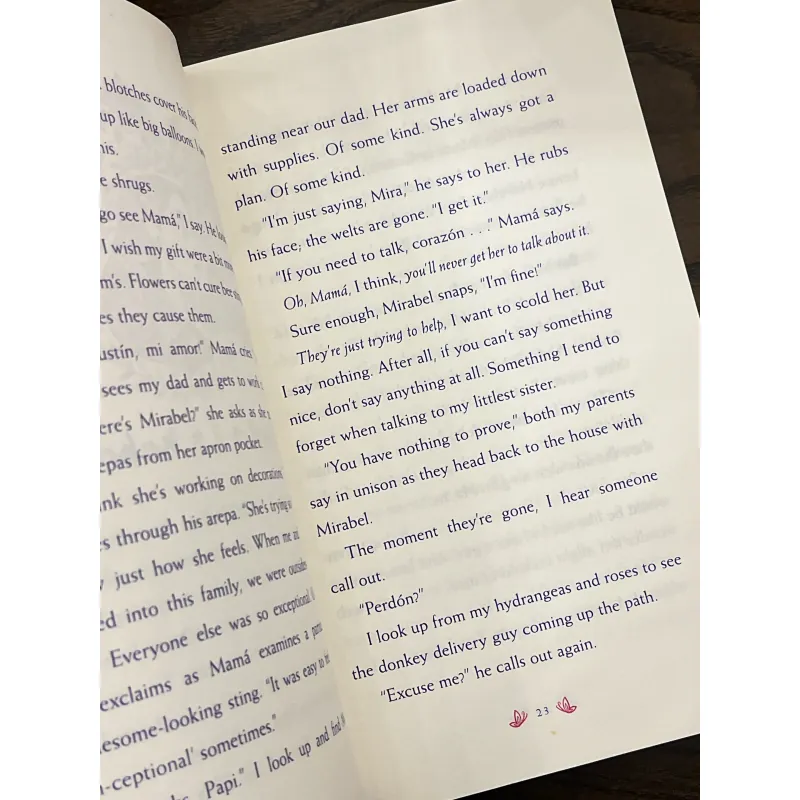 blotches cover his
up like big balloons. I
his.
e shrugs.
go see Mamá," I say. He
I wish my gift were a bit
m's. Flowers can't cure bee
es they cause them.
ustín, mi amor!" Mamá cries
sees my dad and gets to work
ere's Mirabel?" she asks as she
epas from her apron pocket.
nk she's working on decorations
s through his arepa. "She's trying
just how she feels. When me
ed into this family, we were outside
Everyone else was so exceptional.
exclaims as Mamá examines a
esome-looking sting. "It was easy to
-ceptional' sometimes."
Papi." I look up and find
standing near our dad. Her arms are loaded down
with supplies. Of some kind. She's always got a
plan. Of some kind.
"I'm just saying, Mira," he says to her. He rubs
his face; the welts are gone. "I get it."
"If you need to talk, corazón . . ." Mamá says.
Oh, Mamá, I think, you'll never get her to talk about it.
Sure enough, Mirabel snaps, "I'm fine!"
They're just trying to help, I want to scold her. But
I say nothing. After all, if you can't say something
nice, don't say anything at all. Something I tend to
forget when talking to my littlest sister.
"You have nothing to prove," both my parents
say in unison as they head back to the house with
Mirabel.
The moment they're gone, I hear someone
call out.
"Perdón?"
I look up from my hydrangeas and roses to see
the donkey delivery guy coming up the path.
"Excuse me?" he calls out again.
23